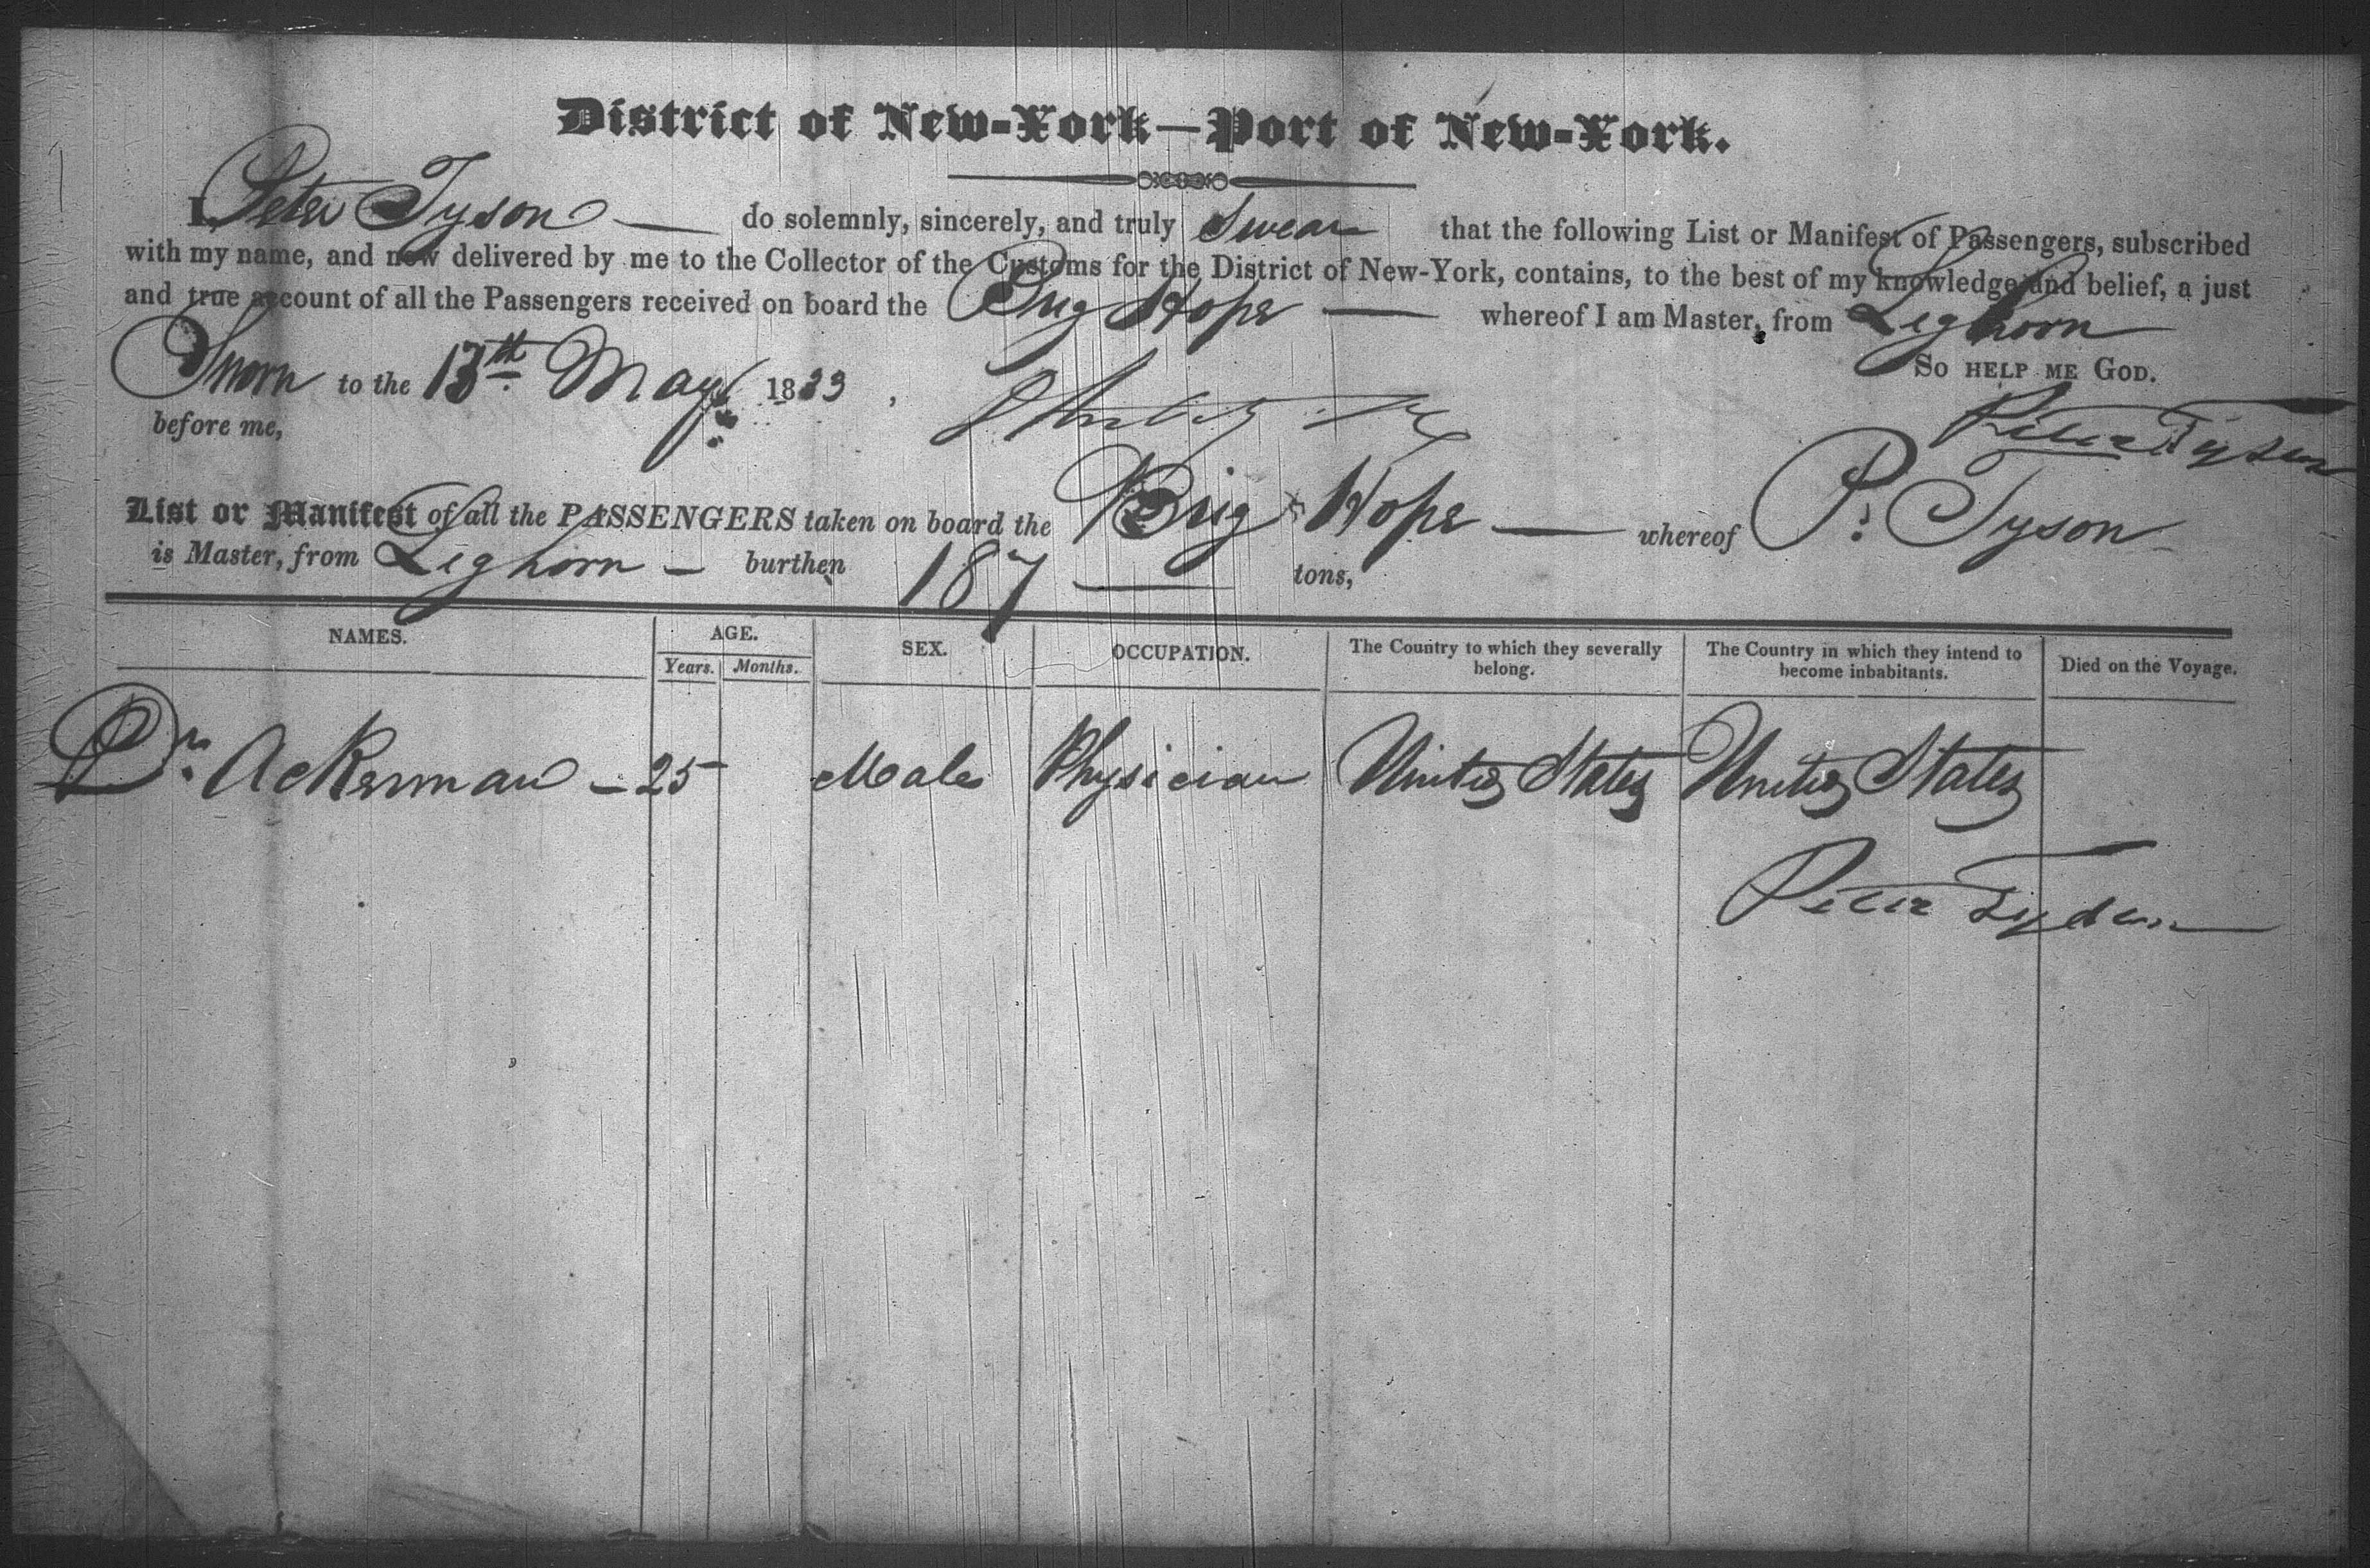 District of New-York—Port of New-York.
I, Peter Tyson — do solemnly, sincerely, and truly Swear that the following List or Manifest of Passengers, subscribed
with my name, and now delivered by me to the Collector of the Customs for the District of New-York, contains, to the best of my knowledge and belief, a just
and true account of all the Passengers received on board the Brig Hope — whereof I am Master, from Leghorn
So help me God.
Sworn to the 13th May 1833,
before me,
Peter Tyson
List or Manifest of all the PASSENGERS taken on board the Brig Hope — whereof P. Tyson
is Master, from Leghorn — burthen 187 — tons,
NAMES. AGE. SEX. OCCUPATION. The Country to which they severally belong. The Country in which they intend to become inhabitants. Died on the Voyage.
Years. Months.
Dr. Ackerman — 25 Male Physician United States United States
Peter Tyson